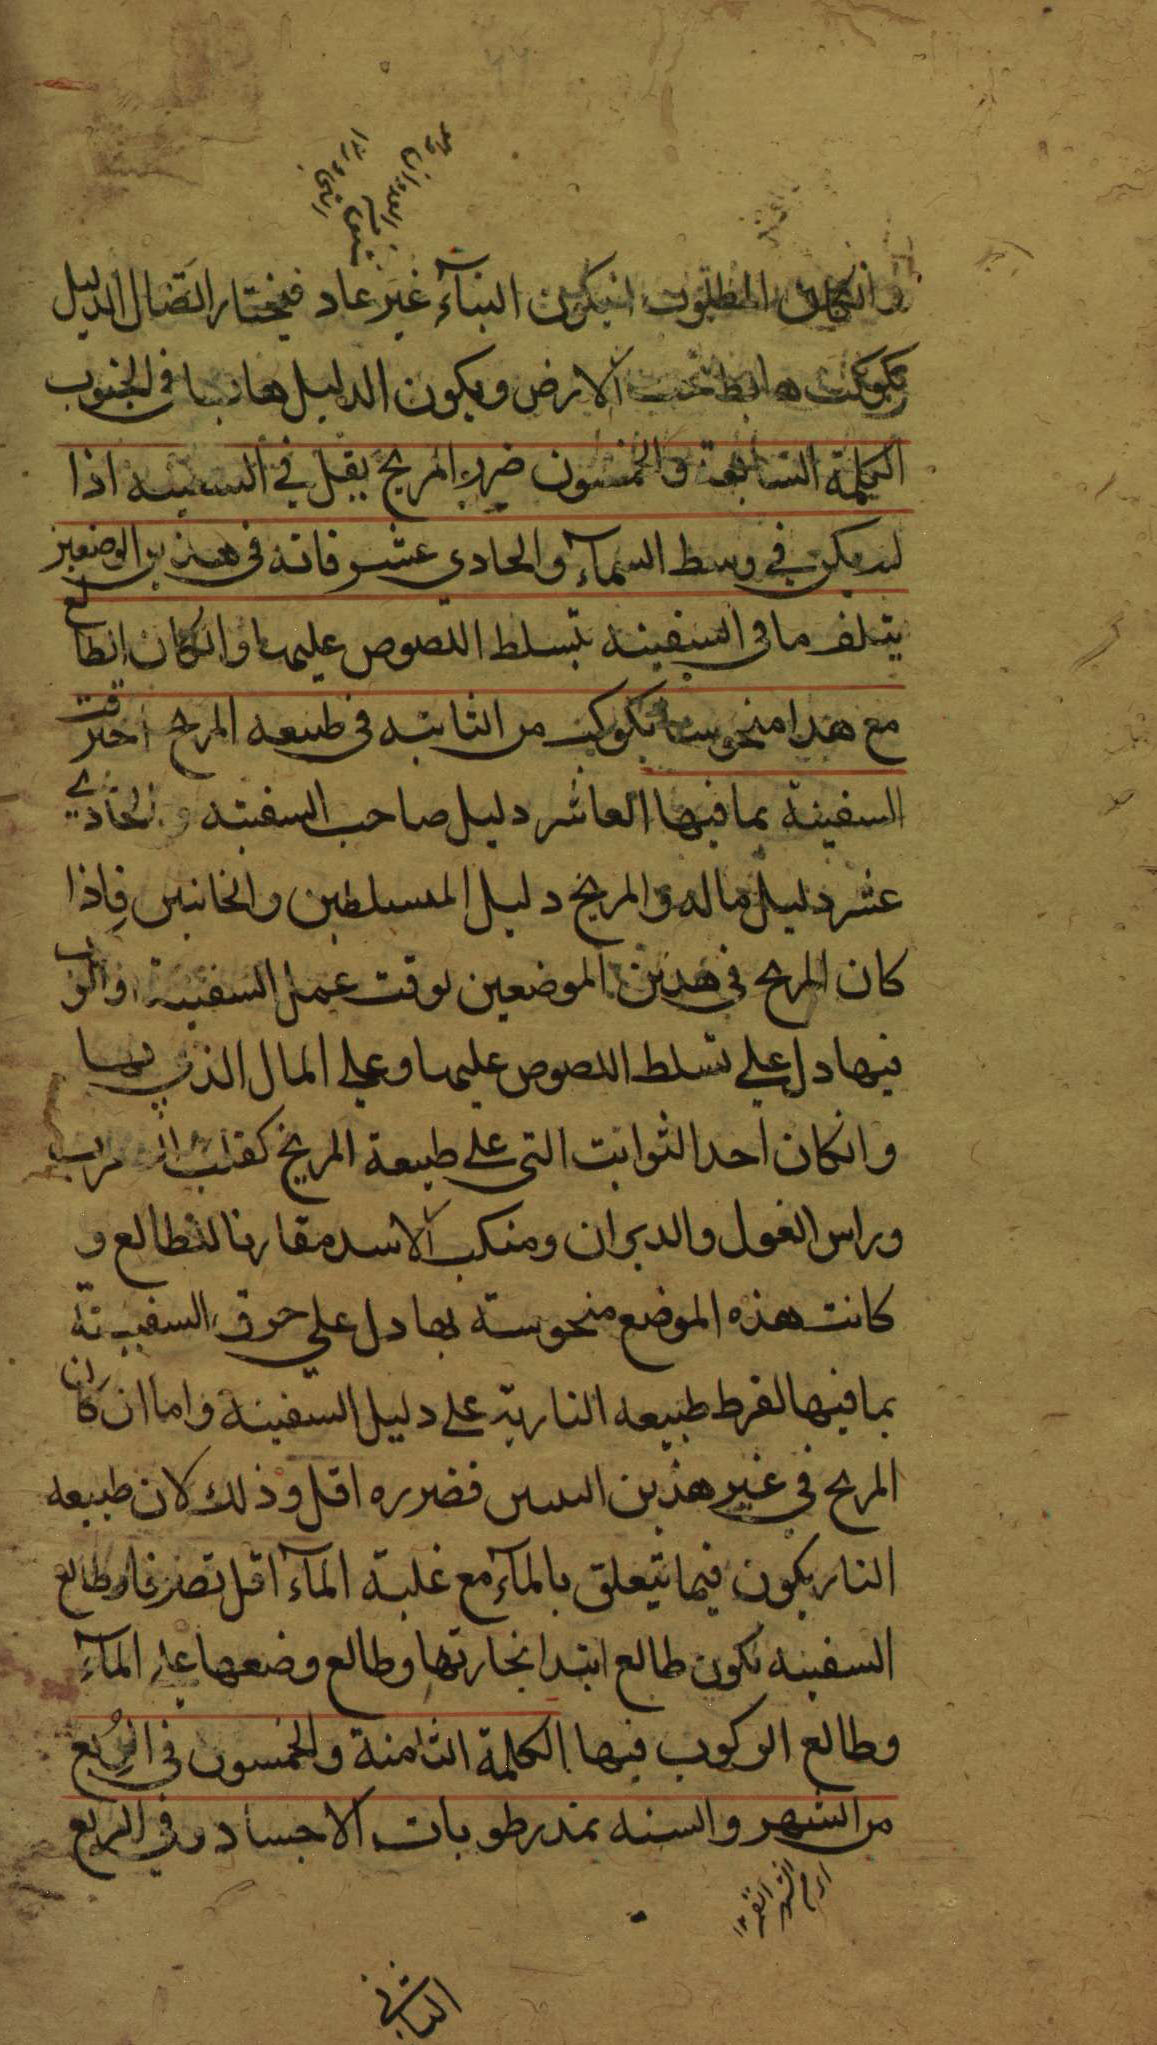 وانكان المطلوب انيكون البناء غير عاد فيختار اتصال الدليل
بكوكب هابط تحت الارض ويكون الدليل هابطا في الجنوب
الكلمة السابعة والخمسون ضرر المريخ يقل في السفينه اذا
لم يكن في وسط السمآء والحادي عشر فانه في هذين الوضعين
يتلف ما في السفينه بتسلط اللصوص عليها وانكان الطالع
مع هذا منحوسا بكوكب من الثابته في طبيعه المريخ احترقت
السفينة بما فيها العاشر دليل صاحب السفينه والحادي
عشر دليل ماله والمريخ دليل المسلطين والخائنين فاذا
كان المريخ في هذين الموضعين لوقت عمل السفينة والركوب
فيها دل على تسلط اللصوص عليها وعلى المال الذي بها
وانكان احد الثوابت التي على طبيعة المريخ كقلب العقرب
وراس الغول والدبران ومنكب الاسد مقارنا للطالع و
كانت هذه الموضع منحوسته بها دل على حرق السفينة
بما فيها لفرط طبيعه الناريه على دليل السفينة واما ان كان
المريخ في غير هذين فضرره اقل وذلك لان طبيعه
النار يكون فيما يتعلق بالمآء مع غلبة المآء اقل تصرفا وطالع
السفينه تكون طالع ابتدا نجارتها وطالع وضعها على المآء
وطالع الركوب فيها الكلمة الثامنة والخمسون في الربع
من الشهر والسنه تمد رطوبات الاجساد وفي الربع
الثاني